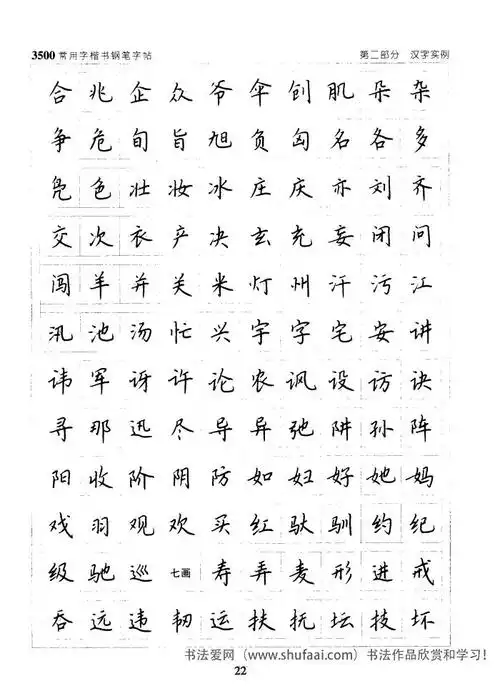 3500常用字楷书钢笔字帖 第二部分 汉字实例
合兆企众爷伞创肌朵杂
争危旬旨旭负匈名各多
凫色壮妆冰庄庆亦刘齐
交次衣产决玄充妄闭问
闯羊并关米灯州汗污江
汛池汤忙兴宇字宅安讲
讳军讶许论农讽设访诀
寻那迅尽导异弛阱孙阵
阳收阶阴防如妇好她妈
戏羽观欢买红驮驯约纪
级驰巡七画寿弄麦形进戒
吞远违韧运扶抚坛技坏
书法爱网(www.shufaai.com)书法作品欣赏和学习!
22